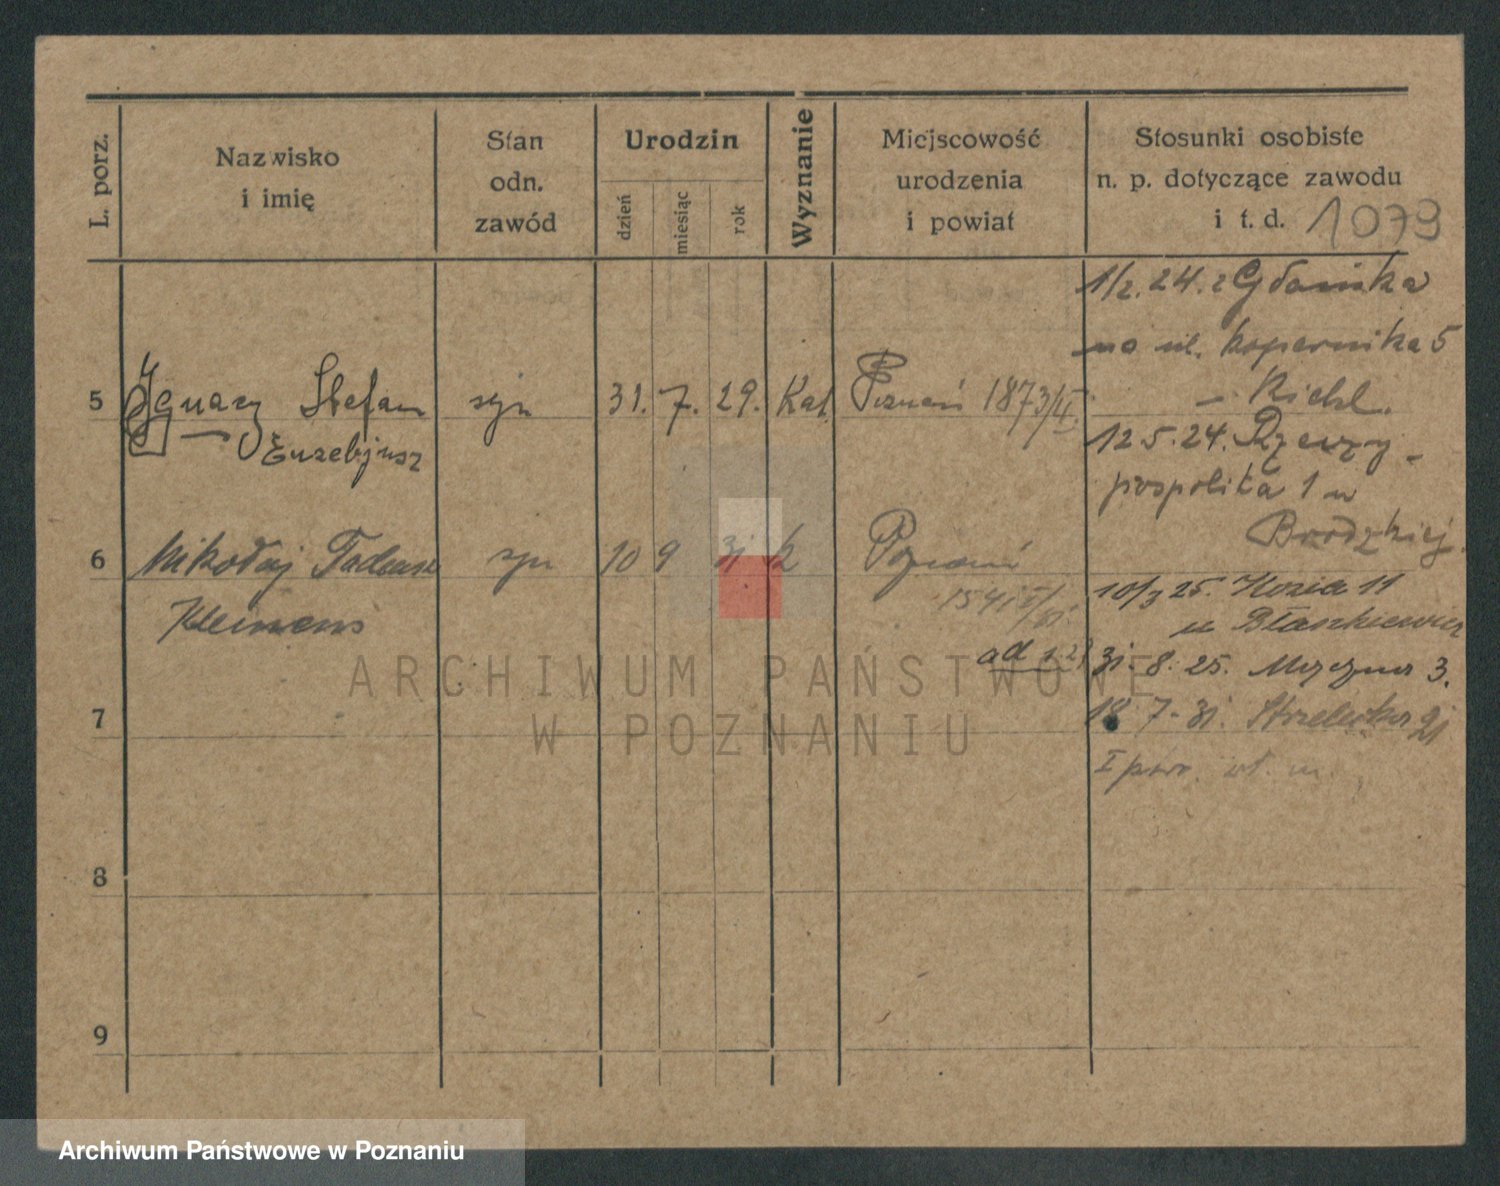 L. porz.
Nazwisko
i imię
Stan
odn.
zawód
Urodzin
dzień
miesiąc
rok
Wyznanie
Miejscowość
urodzenia
i powiat
Stosunki osobiste
n. p. dotyczące zawodu
i t. d. 1079
1/2. 24. z Gdańska
na ul. Kopernika 5
5 Ignacy Stefan syn 31. 7. 29. Kat. Poznań 1873/II.
Euzebjusz
12.5.24. Rzeczy-
pospolita 1 u
6 Mikołaj Tadeusz syn 10 9 31 k Poznań
Klemens
10/3 25. Kozia 11
u Błaszkiewicz
31. 8. 25. Męczyna 3.
7
18 7-31. Strzelecka 21
8
9
ARCHIWUM PAŃSTWOWE
W POZNANIU
Archiwum Państwowe w Poznaniu